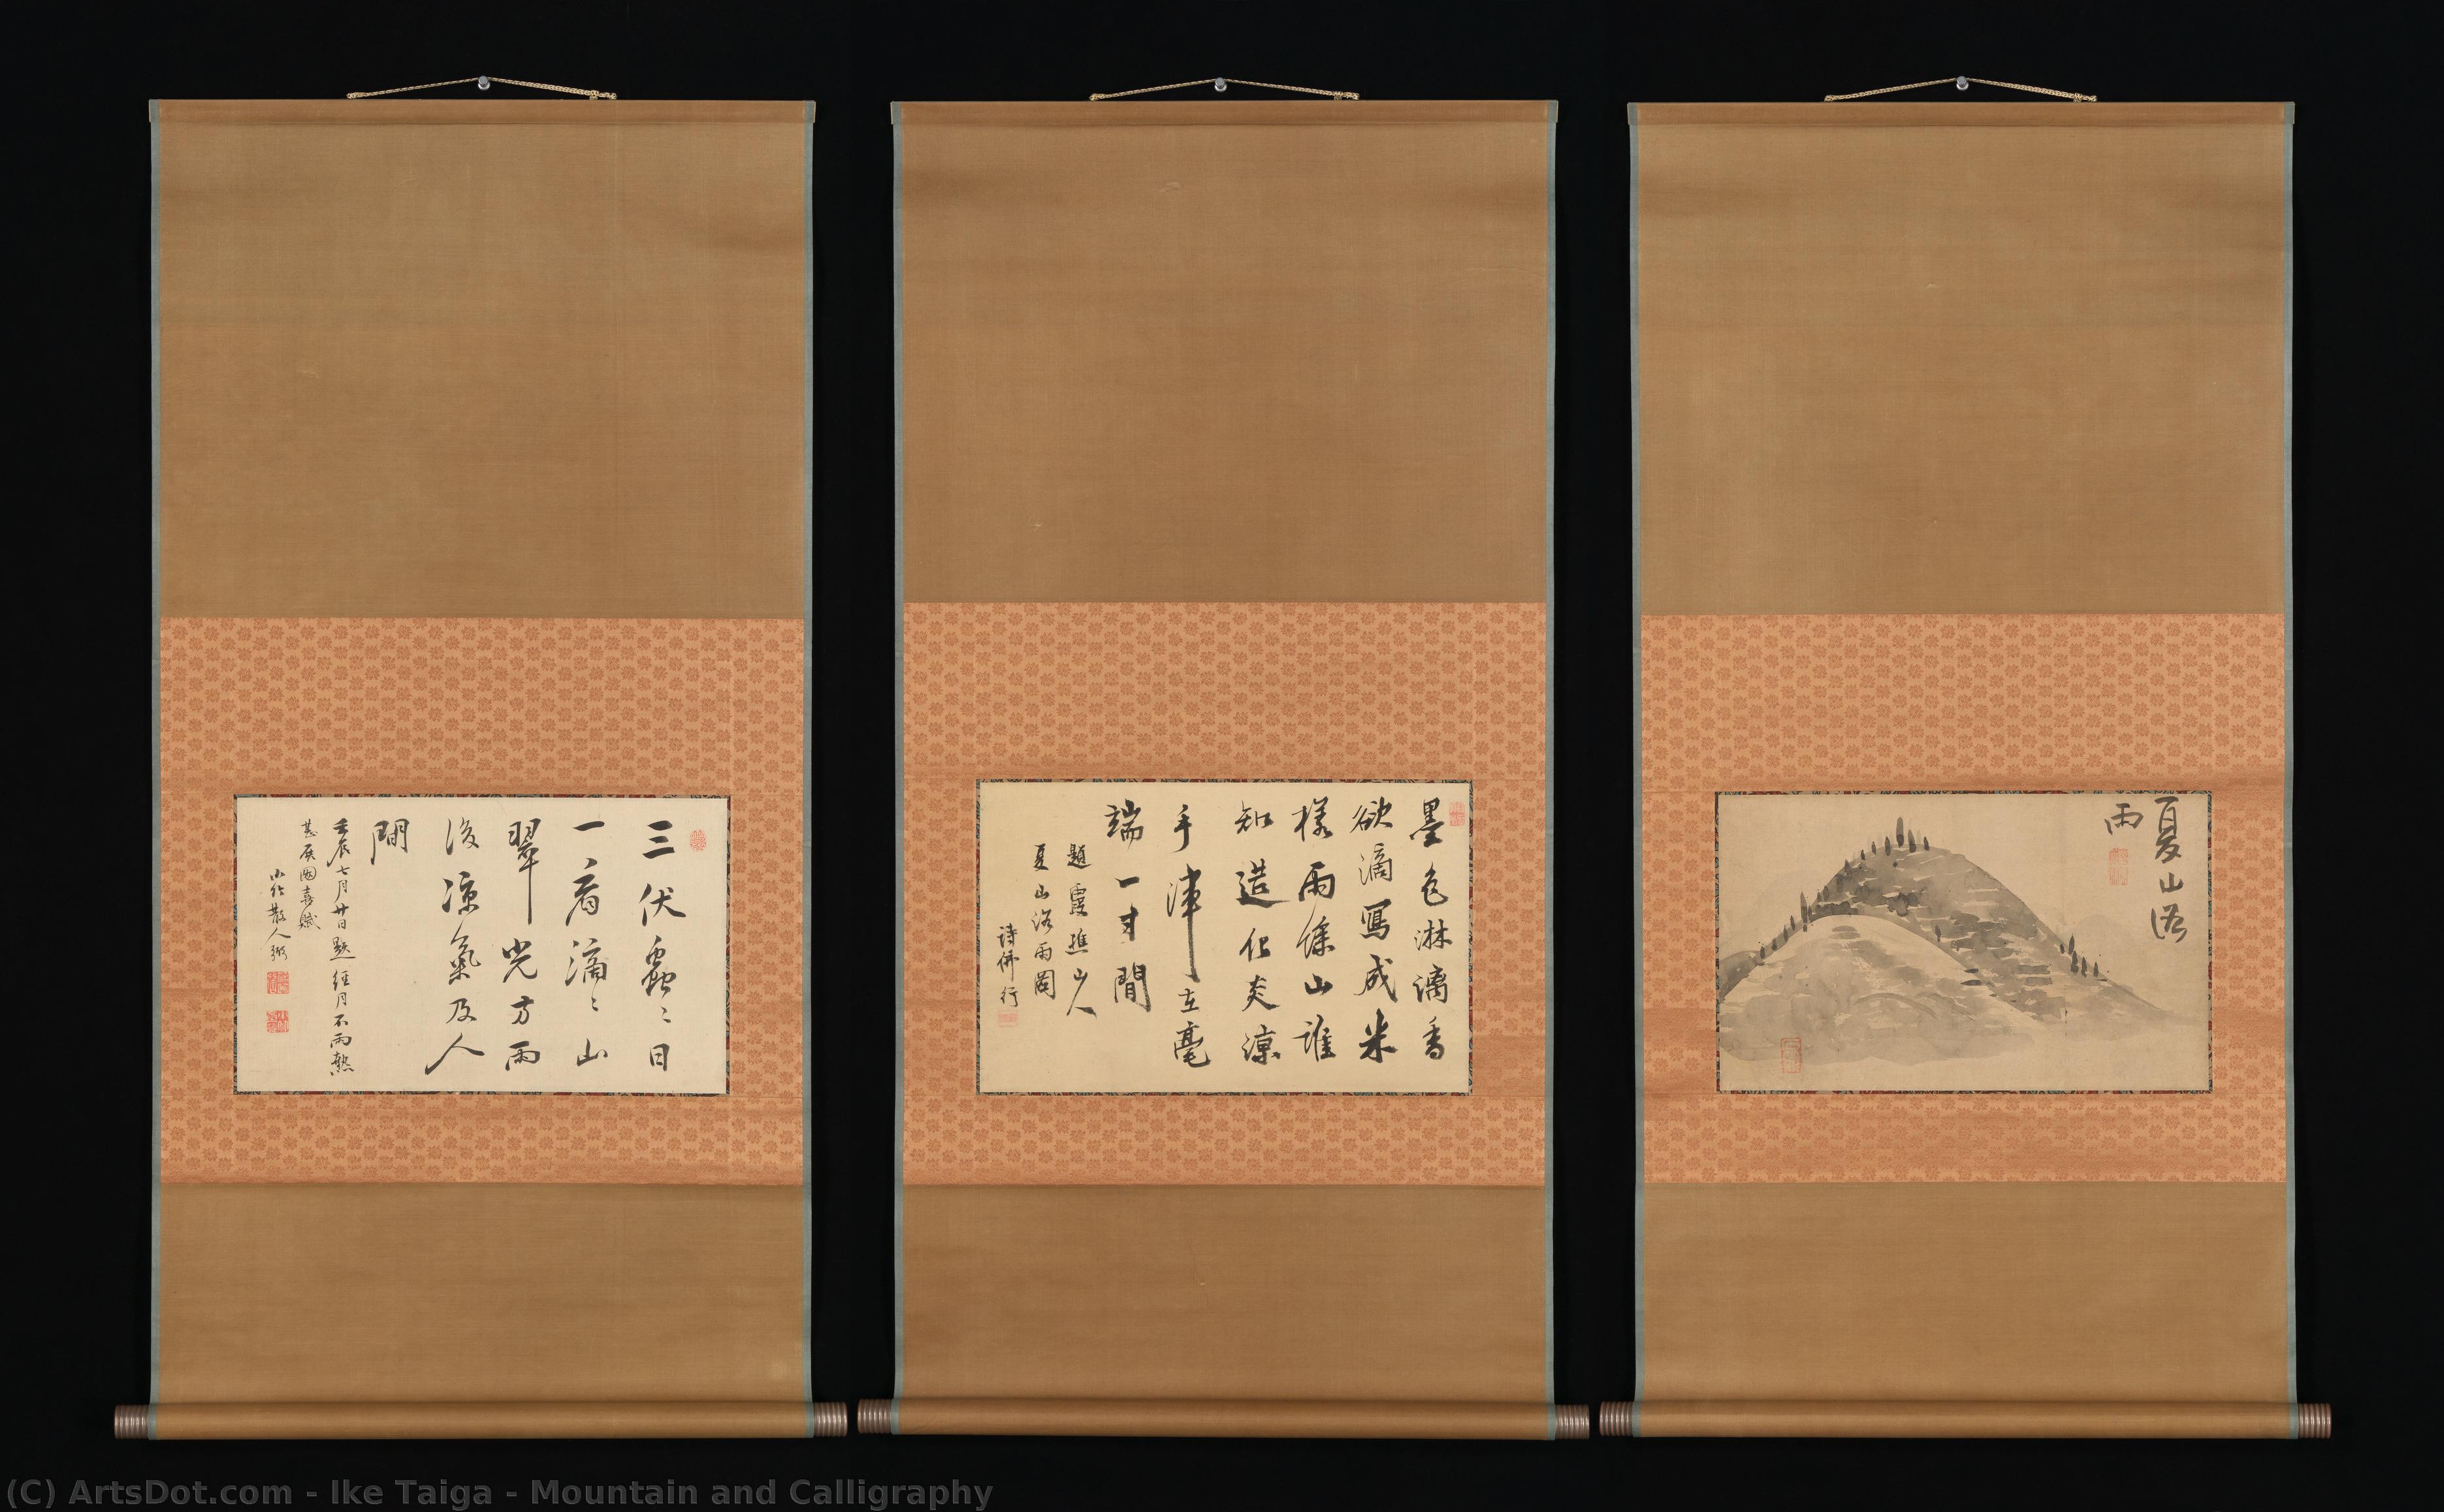 夏山浴
雨
墨色淋漓香
欲滴寫成米
樣雨餘山誰
知造化炎涼
手渾在毫
端一寸間
題霞樵山人
夏山浴雨圖
詩佛行
三伏蟲〻日
一看滴〻山
翠光方雨
後涼氣及人
間
壬辰七月廿日題經月不雨熱
甚展圖喜賦
小竹散人弼
(C) ArtsDot.com - Ike Taiga - Mountain and Calligraphy